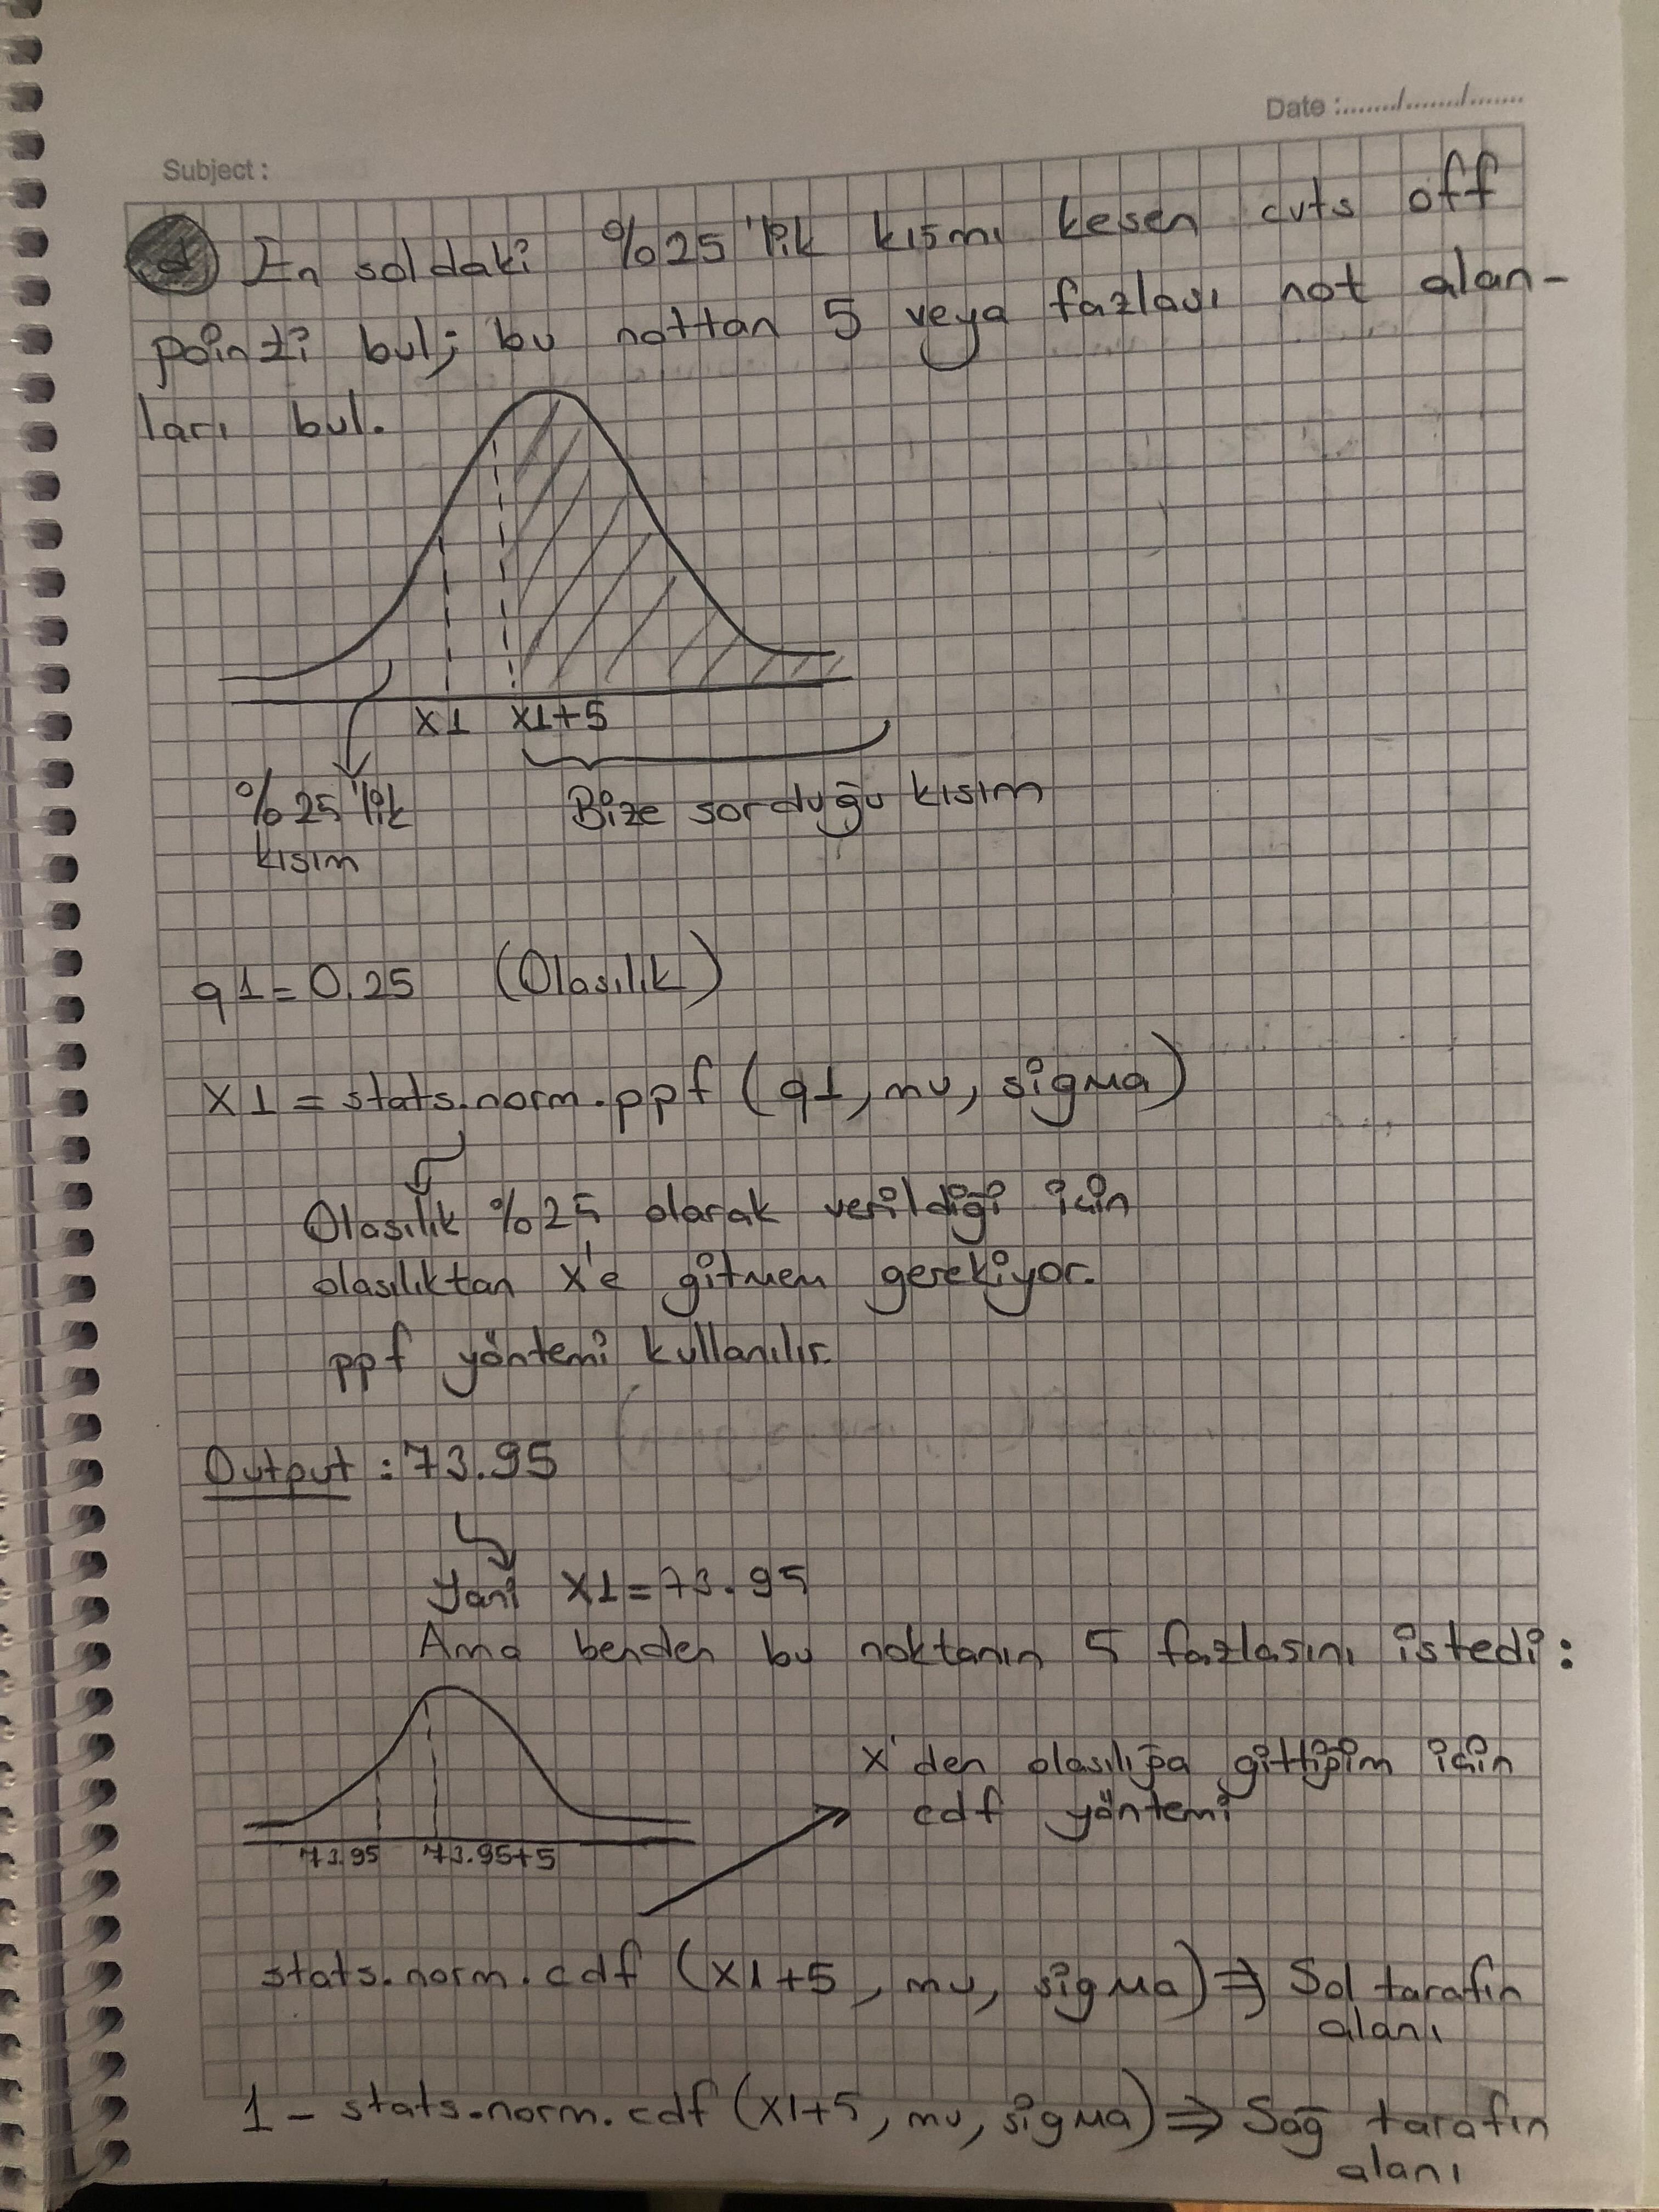 Date :......../......../.......
Subject :
d) En soldaki %25'lik kısmı kesen cuts off
pointi bul; bu nottan 5 veya fazlası not alan-
ları bul.
x1 x1+5
%25'lik
kısım
Bize sorduğu kısım
q1 = 0.25 (Olasılık)
x1 = stats.norm.ppf (q1, mu, sigma)
Olasılık %25 olarak verildiği için
olasılıktan x'e gitmem gerekiyor.
ppf yöntemi kullanılır.
Output : 73.95
Yani x1 = 73.95
Ama benden bu noktanın 5 fazlasını istedi:
73.95 73.95+5
x'den olasılığa gittiğim için
cdf yöntemi
stats.norm.cdf (x1+5, mu, sigma) ⇒ Sol tarafın
alanı
1 - stats.norm.cdf (x1+5, mu, sigma) ⇒ Sağ tarafın
alanı